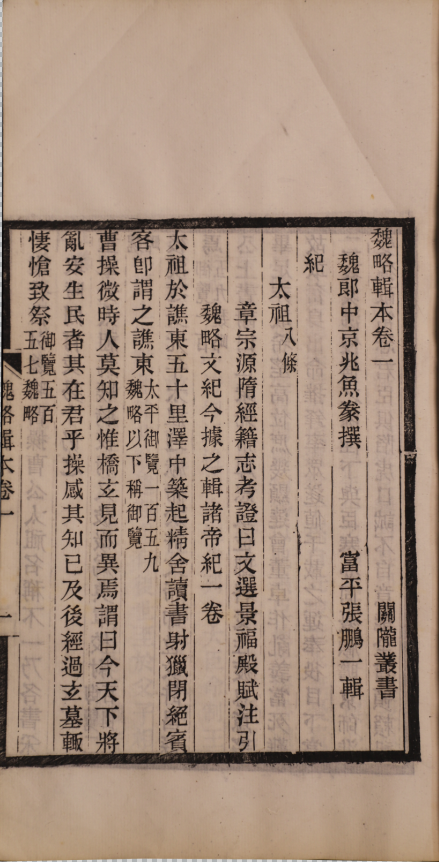 魏略輯本卷一 關隴叢書
魏郎中京兆魚豢撰 富平張鵬一輯
紀
太祖八條
章宗源隋經籍志考證曰文選景福殿賦注引
魏略文紀今據之輯諸帝紀一卷
太祖於譙東五十里澤中築起精舍讀書射獵閉絕賓
客卽謂之譙東太平御覽一百五九魏略以下稱御覽
曹操微時人莫知之惟橋玄見而異焉謂曰今天下將
亂安生民者其在君乎操感其知己及後經過玄墓輒
悽愴致祭御覽五百五七魏略
魏略輯本卷一 一